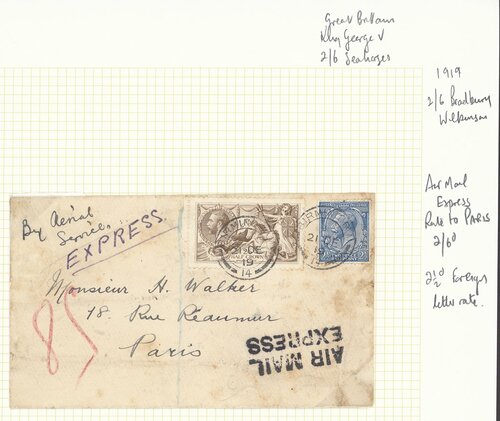 Great Britain
King George V
2/6 Seahorses
1919
2/6 Bradbury
Wilkinson
Air Mail
Express
Rate to PARIS
2/6d
2½d Foreign
letter rate.
By Aerial
Service.
EXPRESS.
85
Monsieur H. Walker
18 Rue Réaumur
Paris
AIR MAIL
EXPRESS
21 DE
19
14
HALF CROWN
21 DE